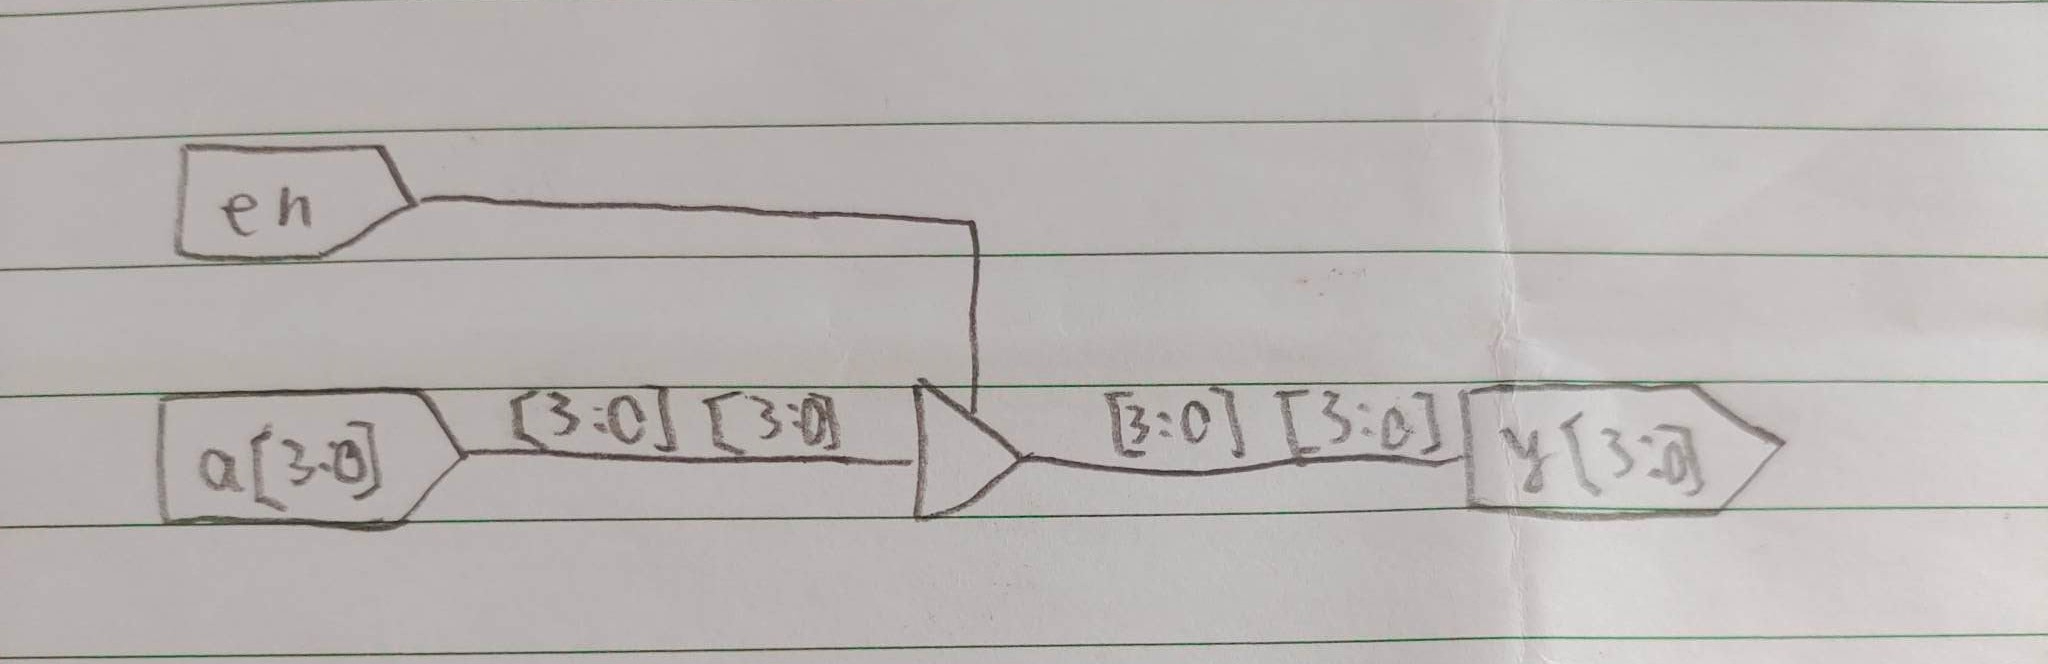 en
a[3:0] [3:0] [3:0] [3:0] [3:0] y[3:0]